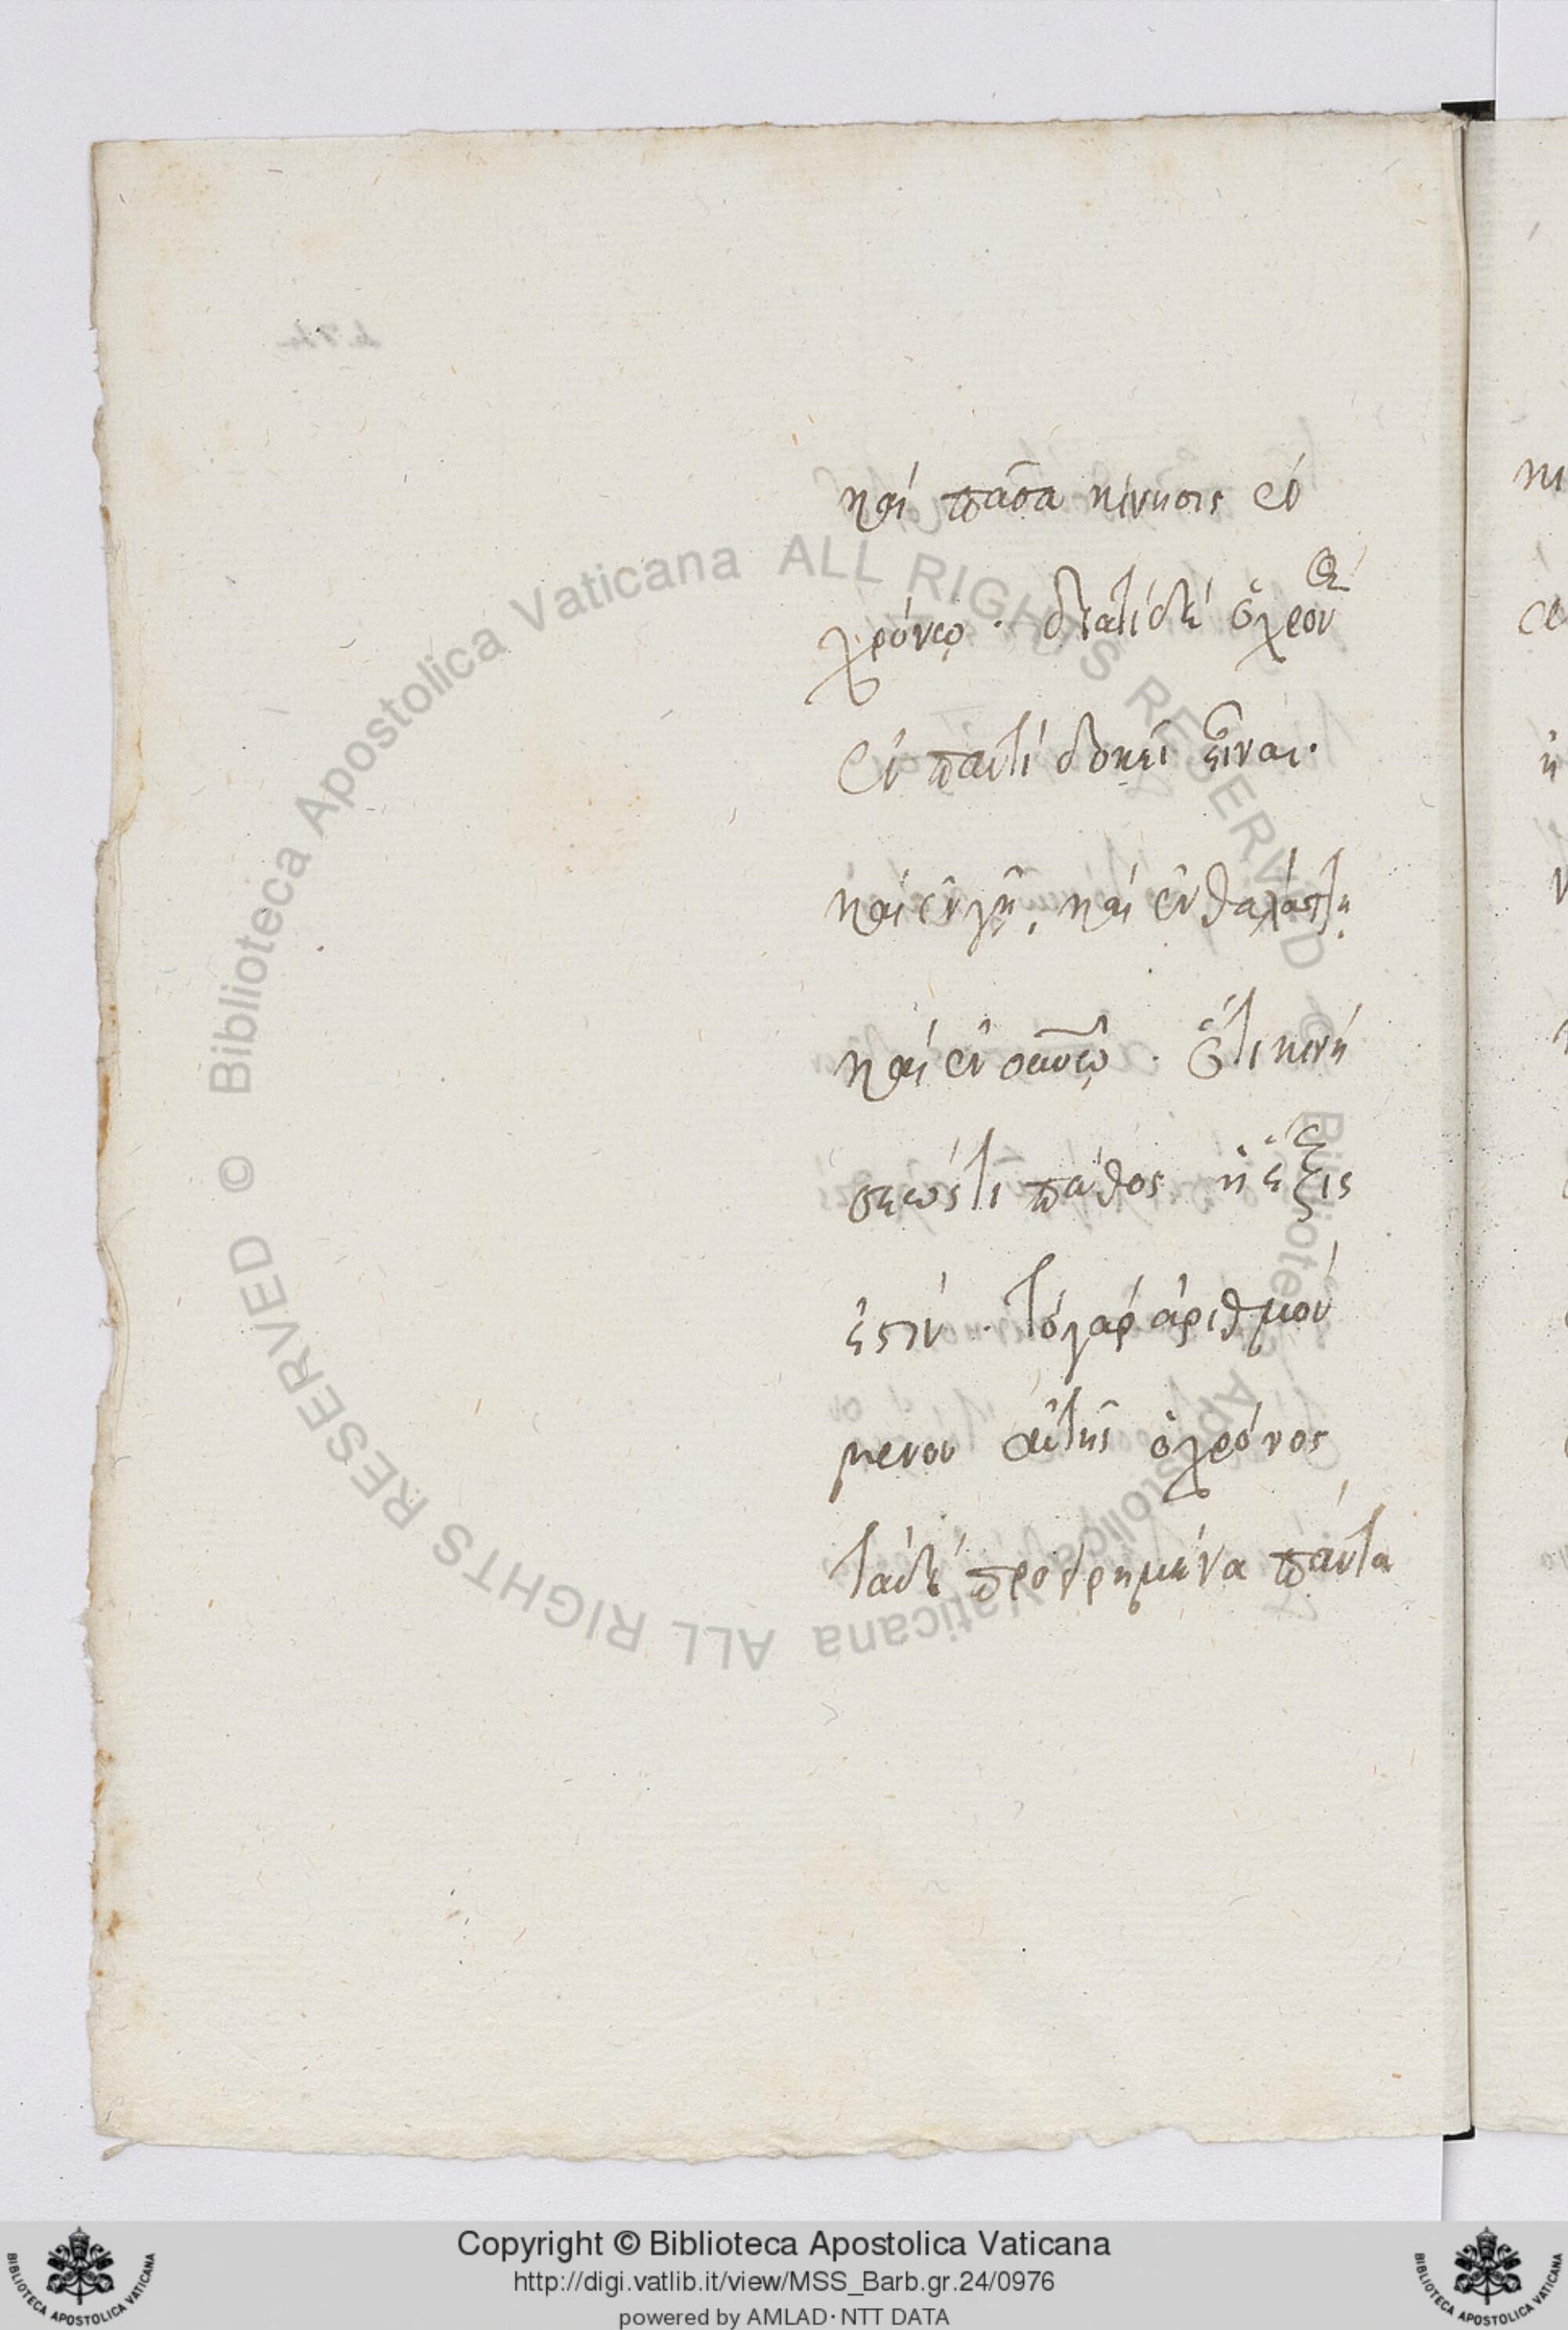 καὶ πᾶσα κίνησις ἐν
χρόνῳ · διατί δὲ ὁ χρόν(ος)
ἐν παντὶ δοκεῖ εἶναι·
καὶ ἐν γῇ, καὶ ἐν θαλάττῃ
καὶ ἐν οὐνῷ · ὅτι κινή
σεώς τι πάθος ἢ ἕξις
ἐστίν · τὸ γὰρ ἀριθμού
μενον αὐτῆς ὁ χρόνος
τὰ δὲ προειρημένα πάντα
© Biblioteca Apostolica Vaticana ALL RIGHTS RESERVED © Biblioteca Apostolica Vaticana ALL RIGHTS RESERVED
Copyright © Biblioteca Apostolica Vaticana
http://digi.vatlib.it/view/MSS_Barb.gr.24/0976
powered by AMLAD·NTT DATA
BIBLIOTECA APOSTOLICA VATICANA
BIBLIOTECA APOSTOLICA VATICANA